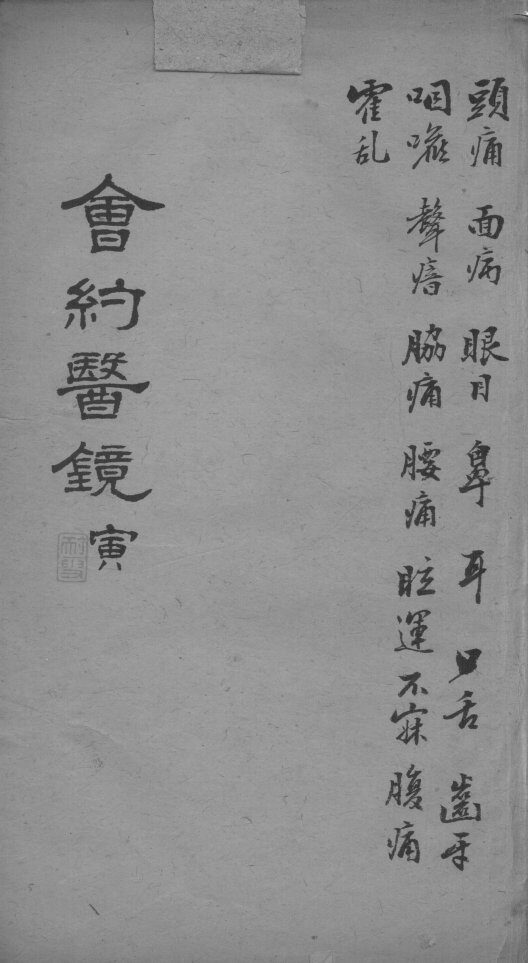 頭痛 面病 眼目 鼻 耳 口舌 齒牙
咽 聲瘖 脇痛 腰痛 眩運 不寐 腹痛
霍乱
會約醫鏡 寅